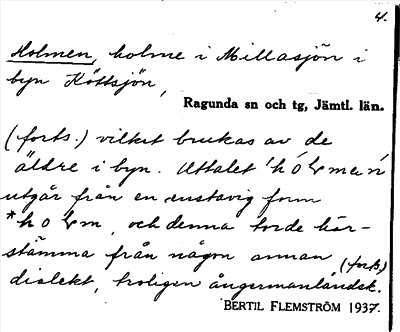 4.
Holmen, holme i Millasjön i
byn Köttsjön,
Ragunda sn och tg, Jämtl. län.
(forts.) vilket brukas av de
äldre i byn. Uttalet
utgår från en enstavig form
och denna torde här-
stamma från någon annan (forts.)
dialekt, troligen ångermanländsk.
BERTIL FLEMSTRÖM 1937.